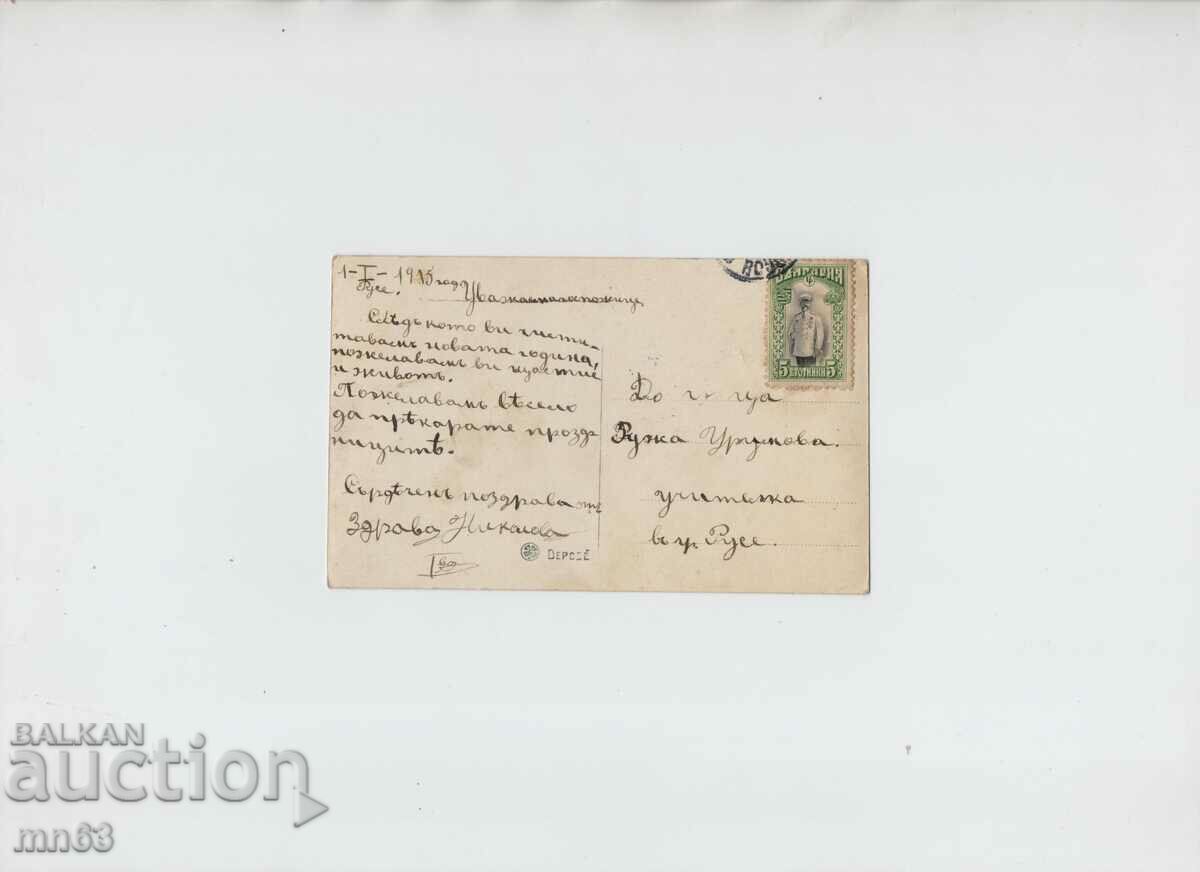 1-I-1915 год.
Русе.
Уважаема госпожице
ви чести-
тавамъ новата година,
пожелавамъ ви щастие
и животъ.
Пожелавамъ вѣсело
да прѣкарате празд-
ницитѣ.
Сърдѣченъ поздравъ отъ
Здрава Николова
DEPOSÉ
БЪЛГАРИЯ
5 СТОТИНКИ 5
До г-ца
Ружа Урумова.
учителка
въ гр. Русе.
BALKAN
auction
мп63